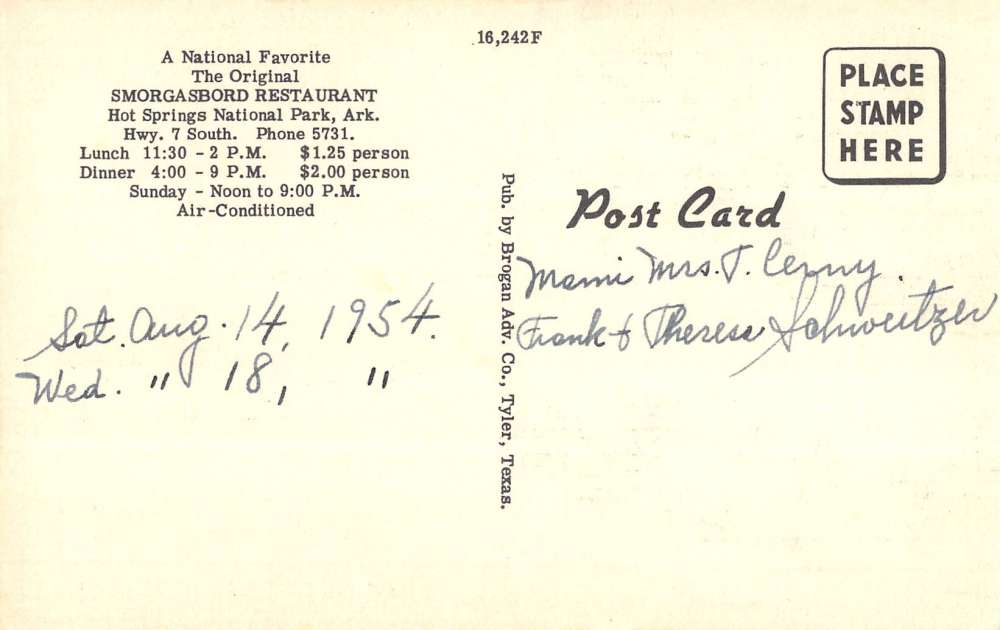 16,242F
A National Favorite
The Original
SMORGASBORD RESTAURANT
Hot Springs National Park, Ark.
Hwy. 7 South. Phone 5731.
Lunch 11:30 - 2 P.M. $1.25 person
Dinner 4:00 - 9 P.M. $2.00 person
Sunday - Noon to 9:00 P.M.
Air-Conditioned
Sat. Aug. 14, 1954.
Wed. " 18, "
Pub. by Brogan Adv. Co., Tyler, Texas.
PLACE
STAMP
HERE
Post Card
Mami Mrs. T. Cerny.
Frank & Theress Schweitzer